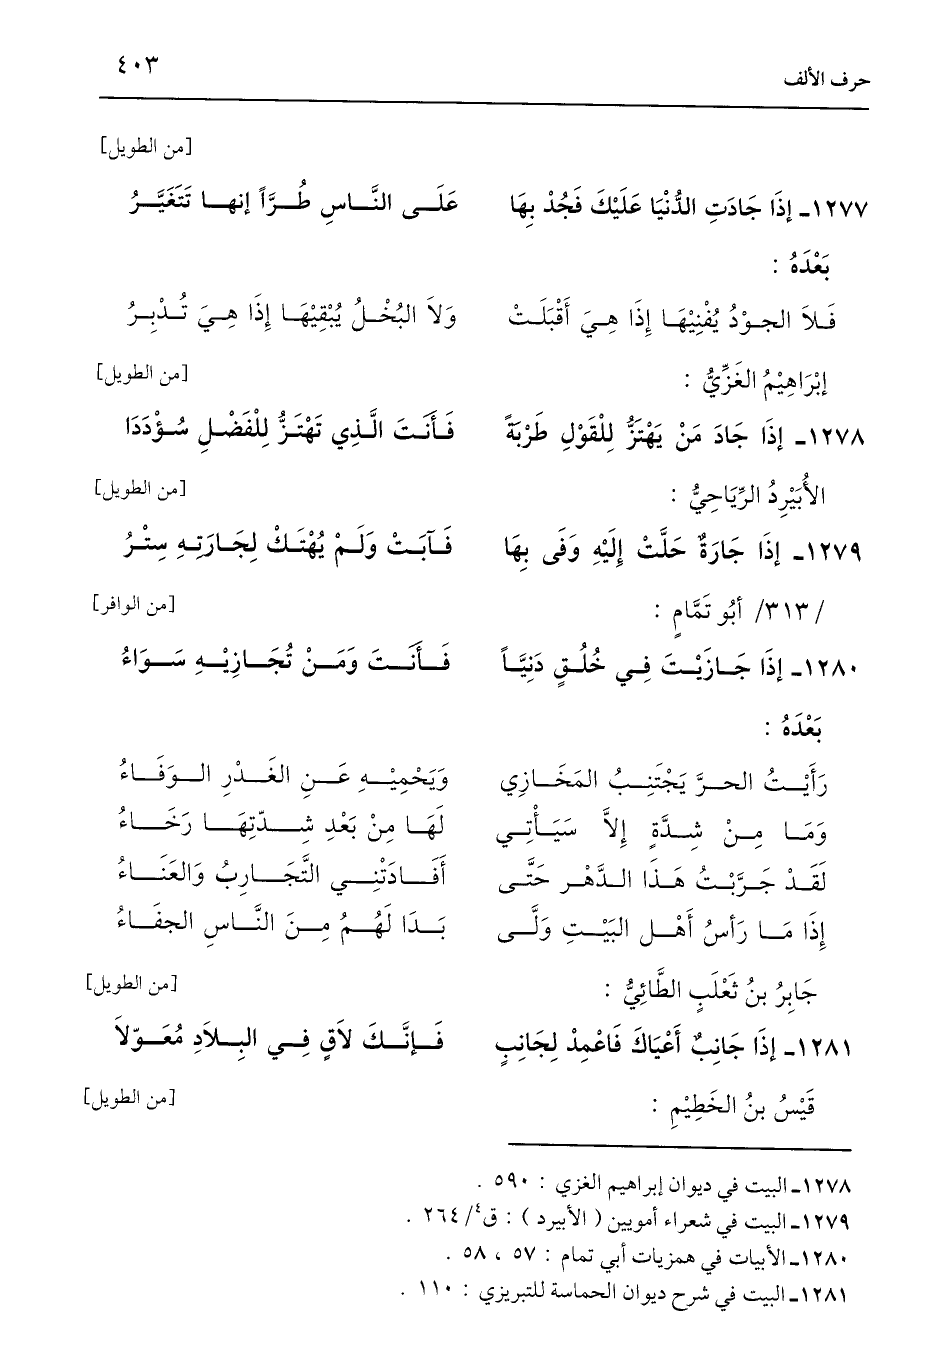 حرف الألف ٤٠٣
[من الطويل]
١٢٧٧ـ إذَا جَادَتِ الدُّنْيَا عَلَيْكَ فَجُدْ بِهَا عَلَــى النَّــاسِ طُــرَّاً إنهــا تَتَغَيَّــرُ
بَعْدَهُ :
فَــلاَ الجــوْدُ يُفْنِيْهَــا إذَا هِــيَ أَقْبَلَــتْ وَلاَ البُخْــلُ يُبْقِيْهَــا إذَا هِــيَ تُــدْبِــرُ
إبْرَاهِيْمُ الغَزِّيُّ : [من الطويل]
١٢٧٨ـ إذَا جَادَ مَنْ يَهْتَزُّ لِلْقَوْلِ طَرْبَةً فَــأَنَــتَ الَّــذِي تَهْتَــزُّ لِلْفَضْــلِ سُــؤْدَدَا
الأُبَيْرِدُ الرِّيَاحِيُّ : [من الطويل]
١٢٧٩ـ إذَا جَارَةٌ حَلَّتْ إلَيْهِ وَفَى بِهَا فَــآبَــتْ وَلَــمْ يُهْتَــكْ لِجَــارَتِــهِ سِتْــرُ
/٣١٣/ أبُو تَمَّامٍ : [من الوافر]
١٢٨٠ـ إذَا جَــازَيْــتَ فِــي خُلُــقٍ دَنِيَّــاً فَــأَنــتَ وَمَــنْ تُجَــازِيْــهِ سَــوَاءُ
بَعْدَهُ :
رَأَيْــتُ الحــرَّ يَجْتَنِــبُ المَخَــازِي وَيَحْمِيْــهِ عَــنِ الغَــدْرِ الــوَفَــاءُ
وَمَــا مِــنْ شِــدَّةٍ إلاَّ سَيَــأْتِــي لَهَــا مِنْ بَعْدِ شِــدّتِهَــا رَخَــاءُ
لَقَــدْ جَــرَّبْــتُ هَــذَا الــدَّهْــرِ حَتَّــى أَفَــادَتْنِــي التَّجَــارِبُ وَالعَنَــاءُ
إذَا مَــا رَأسُ أَهْــلِ البَيْــتِ وَلَّــى بَــدَا لَهُــمُ مِــنَ النَّــاسِ الجفَــاءُ
جَابِرُ بنُ ثَعْلَبٍ الطَّائِيُّ : [من الطويل]
١٢٨١ـ إذَا جَانِبٌ أَعْيَاكَ فَاعْمِدْ لِجَانِبٍ فَــإنَّــكَ لاَقٍ فِــي البِــلاَدِ مُعَــوّلاَ
قَيْسُ بنُ الخَطِيْمِ : [من الطويل]
١٢٧٨ـ البيت في ديوان إبراهيم الغزي : ٥٩٠ .
١٢٧٩ـ البيت في شعراء أمويين ( الأبيرد ) : ق٤/ ٢٦٤ .
١٢٨٠ـ الأبيات في همزيات أبي تمام : ٥٧ ، ٥٨ .
١٢٨١ـ البيت في شرح ديوان الحماسة للتبريزي : ١١٠ .